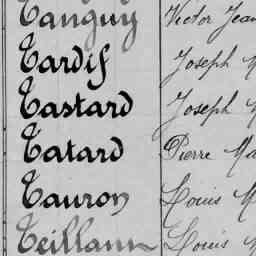 Tanguy Victor Jean
Tardif Joseph M
Tastard Joseph M
Tatard Pierre Ma
Tauron Louis M
Teillann Louis M